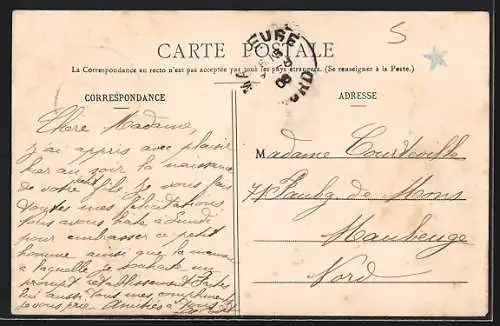 CARTE POSTALE
La Correspondance au recto n'est pas acceptée par tous les pays étrangers. (Se renseigner à la Poste.)
CORRESPONDANCE
Chère Madame,
j'ai appris avec plaisir
hier au soir la naissance
de votre petit fils je vous fais
toutes mes félicitations
nous avons hâte à lundi
pour embrasser ce petit
homme ainsi que la maman
à laquelle je souhaite un
prompt rétablissement
aussi tous mes compliments
je vous prie. Amitiés à
ADRESSE
Madame Courteville
74 Faubg. de Mons
Maubeuge
Nord
5
MAUBEUGE
NORD